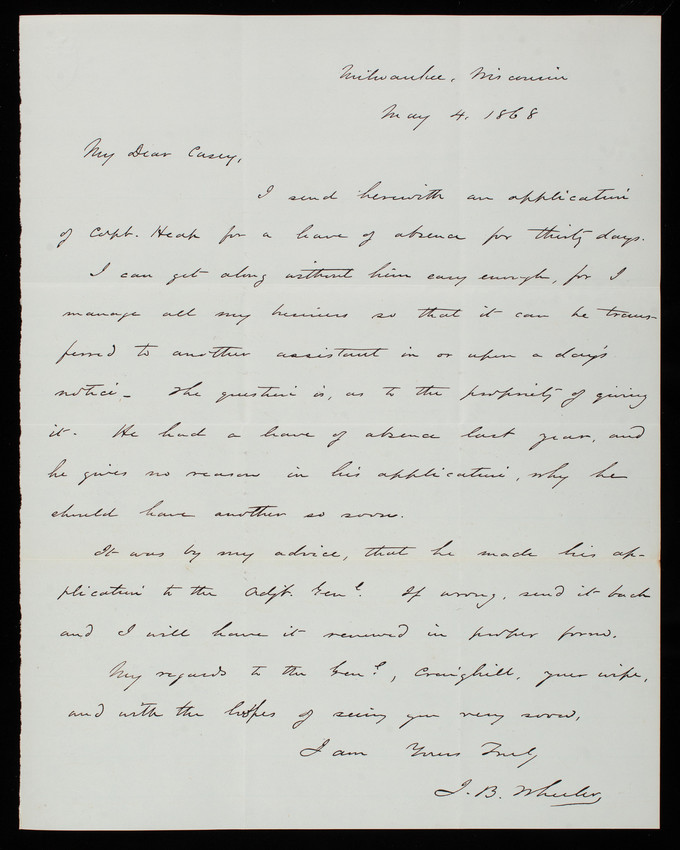 Milwaukee, Wisconsin
May 4, 1868
My Dear Casey,
I send herewith an application
of Capt. Heap for a leave of absence for thirty days.
I can get along without him easy enough, for I
manage all my business so that it can be trans-
ferred to another assistant in or upon a day's
notice - The question is, as to the propriety of giving
it. He had a leave of absence last year, and
he gives no reason in his application, why he
should have another so soon.
It was by my advice, that he made his ap-
plication to the Adjt. Genl. If wrong, send it back
and I will have it renewed in proper form.
My regards to the Genl., Craighill, your wife,
and with the hopes of seeing you very soon,
I am Yours Truly
J. B. Wheeler